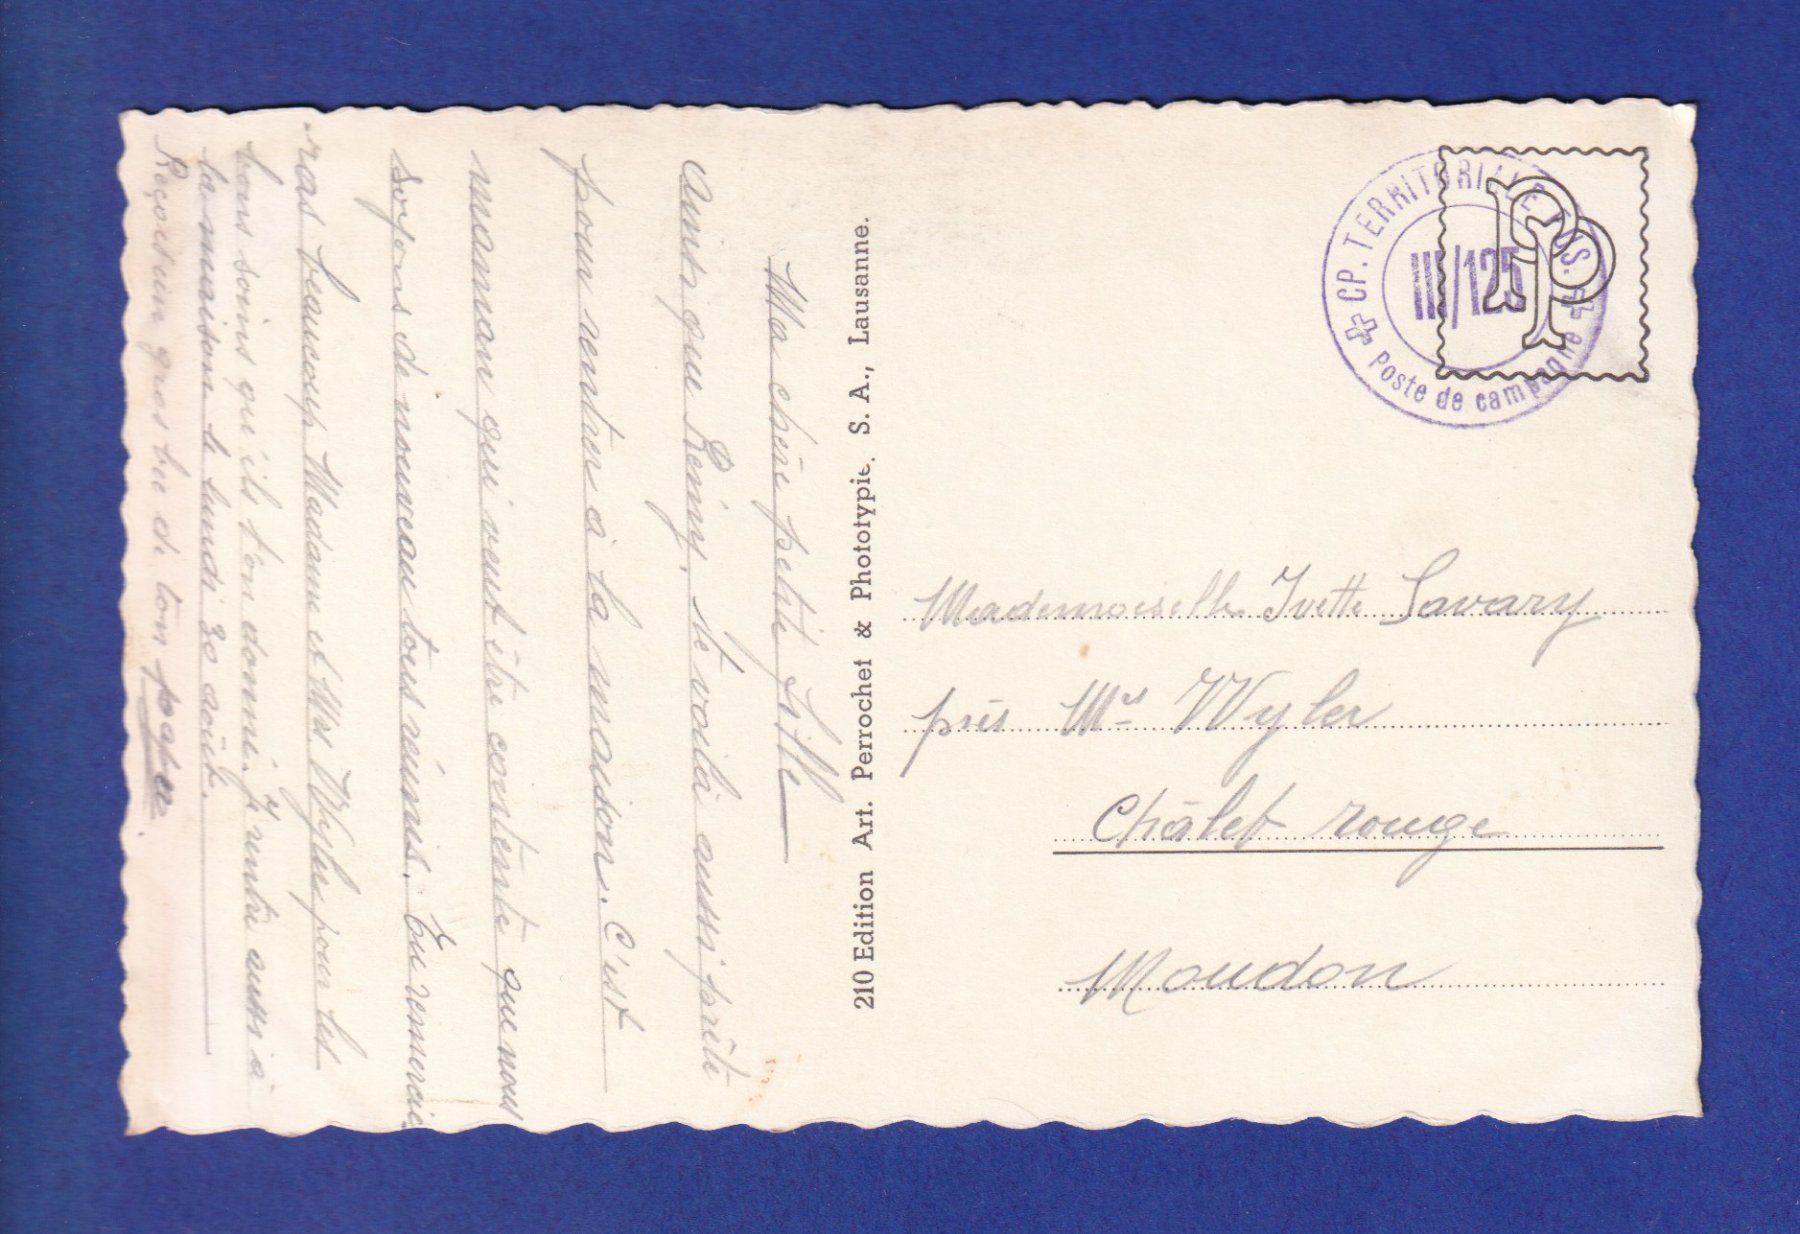 Ma chère petite fille
Ainsi que Rémy, te voilà aussi prête
pour rentrer à la maison. C'est
maman qui veut être contente que nous
soyons de nouveau tous réunis. Tu remercie-
ras beaucoup Madame et Mr Wyler pour les
bons soins qu'ils t'on donné. Je rentre aussi à
la maison le lundi 30 août.
Reçois un gros bec de ton papa.
210 Edition Art. Perrochet & Phototypie. S. A., Lausanne.
CP. TERRITORIALE FUS.
III/125
Poste de campagne
PP
Mademoiselle Ivette Savary
près Mr Wyler
Châlet rouge
Moudon